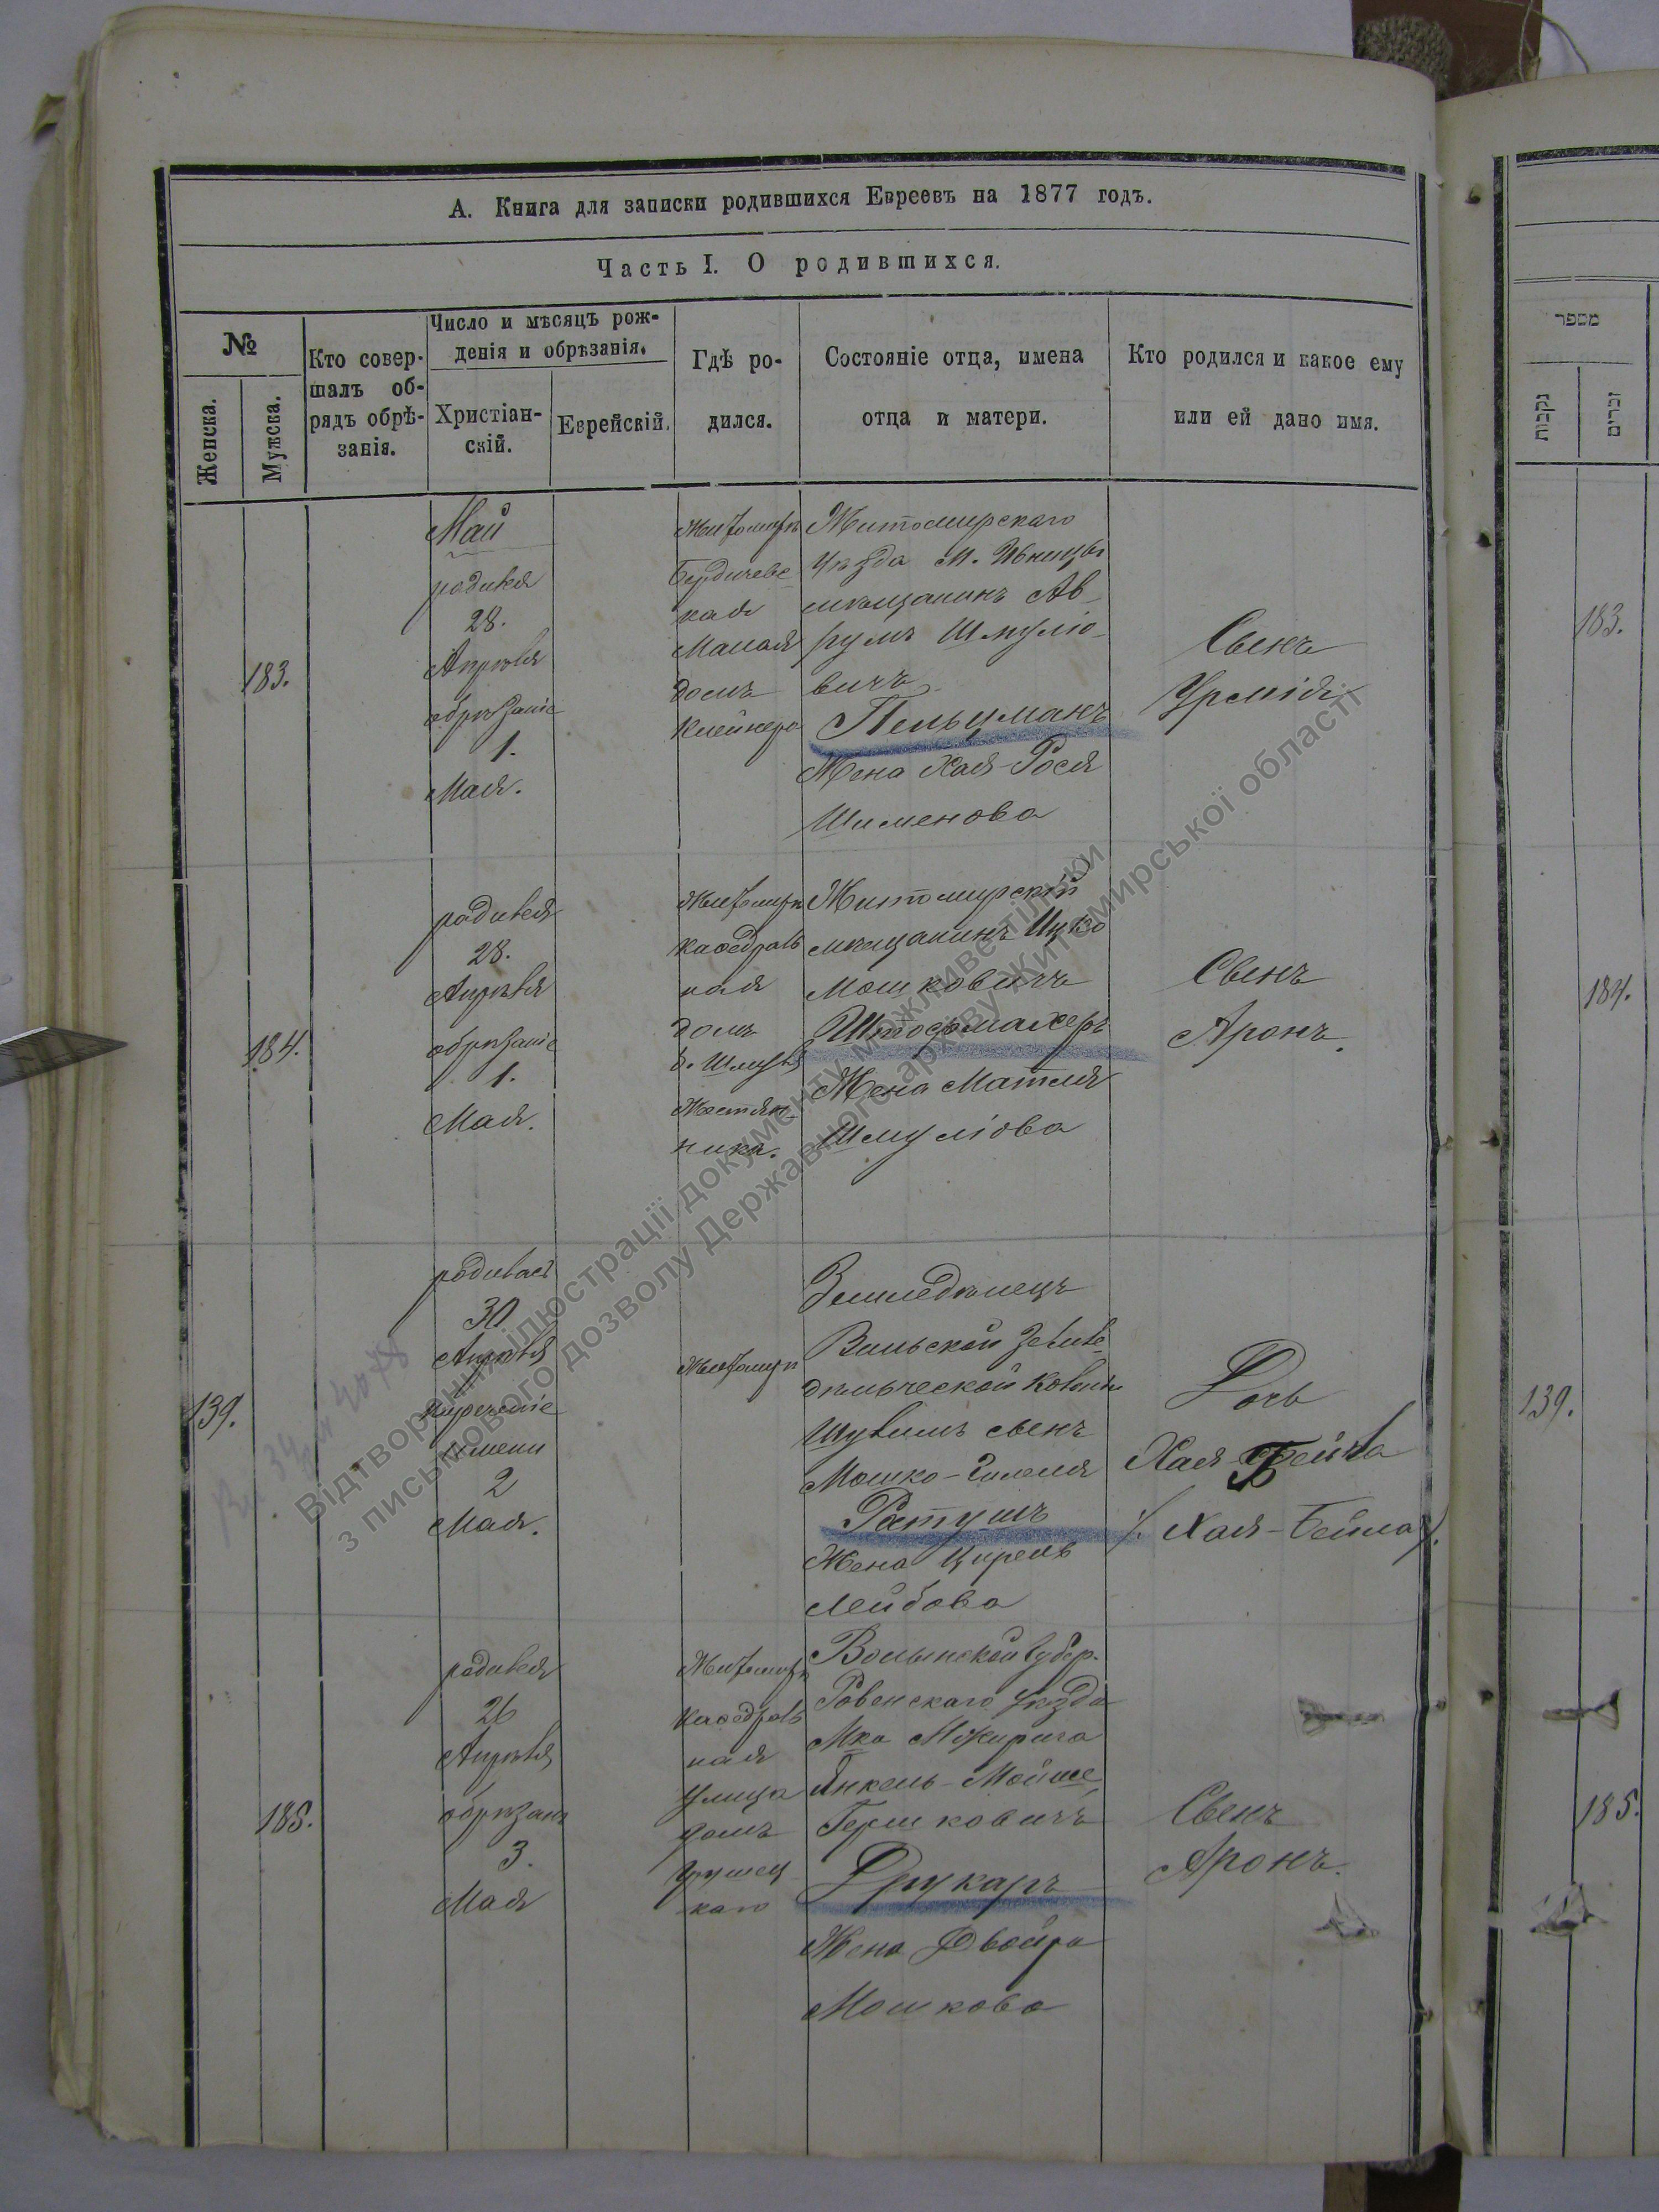 А. Книга для записки родившихся Евреевъ на 1877 годъ.
Часть I. О родившихся.
№
Женска.
Мужска.
Кто совер-
шалъ об-
рядъ обрѣ-
занія.
Число и мѣсяцъ рож-
денія и обрѣзанія.
Христіан-
скій.
Еврейскій.
Гдѣ ро-
дился.
Состояніе отца, имена
отца и матери.
Кто родился и какое ему
или ей дано имя.
183.
Май
родился
28.
Апрѣля
обрѣзаніе
1.
Мая.
Житомиръ
Бердичевс
кая
Малая
домъ
Клейнера
Житомирскаго
Уѣзда М.
мѣщанинъ Ав
румъ Шмуліо
вичъ
Пельцманъ
Жена Хая-Рося
Шименова
Сынъ
184.
родился
28.
Апрѣля
обрѣзаніе
1.
Мая.
Житомиръ
Каѳедраль
ная
домъ
Жестян-
ника.
Житомирскій
мѣщанинъ Ицко
Мошковичъ
Штофмахеръ
Жена Матля
Шмуліова
Сынъ
Аронъ.
139.
родилась
30
Апрѣля
нареченіе
имени
2
Мая.
Житомиръ
Земледѣлецъ
Вильской Землѣ
дѣльческой Колоніи
сынъ
Ратушъ
Жена Цирель
Лейбова
Дочь
Хая-Бейла
/. Хая-Бейла /.
185.
родился
26
Апрѣля
обрѣзаніе
3.
Мая
Житомиръ
Каѳедраль
ная
улица
домъ
каго
Волынской Губер.
Ровенскаго уѣзда
Мка Межирича
Янкель-Мойше
Гершковичъ
Друкаръ
Жена Двойра
Мошкова
Сынъ
Аронъ.
מספר
נקבות
זכרים
183.
184.
139.
185.
Відтворення ілюстрації документу можливе тільки
з письмового дозволу Державного архіву Житомирської області